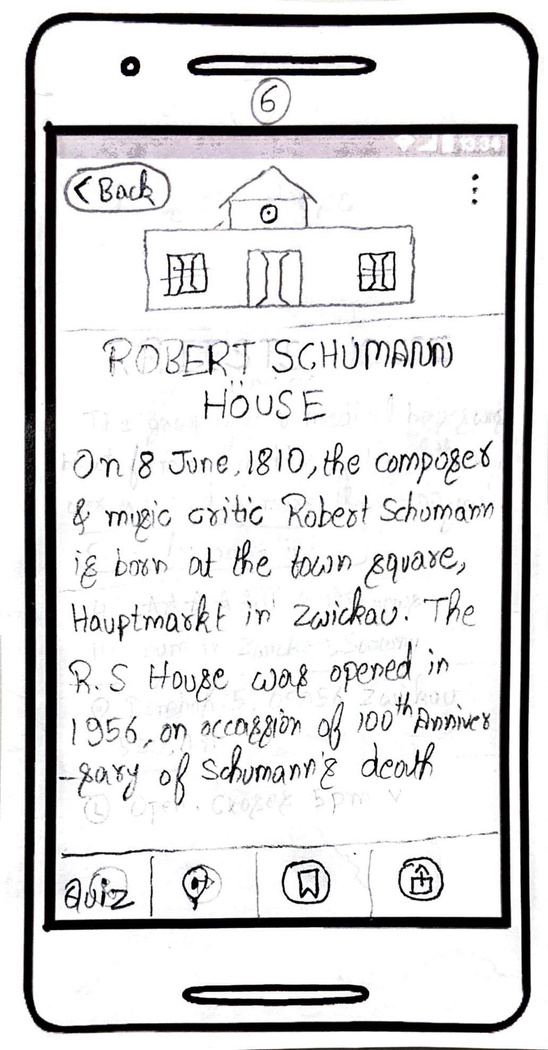 6
< Back
ROBERT SCHUMANN
HOUSE
On 8 June, 1810, the composer
& music critic Robert Schumann
is born at the town square,
Hauptmarkt in Zwickau. The
R.S House was opened in
1956, on occassion of 100th Anniver
-sary of Schumann's death
Quiz